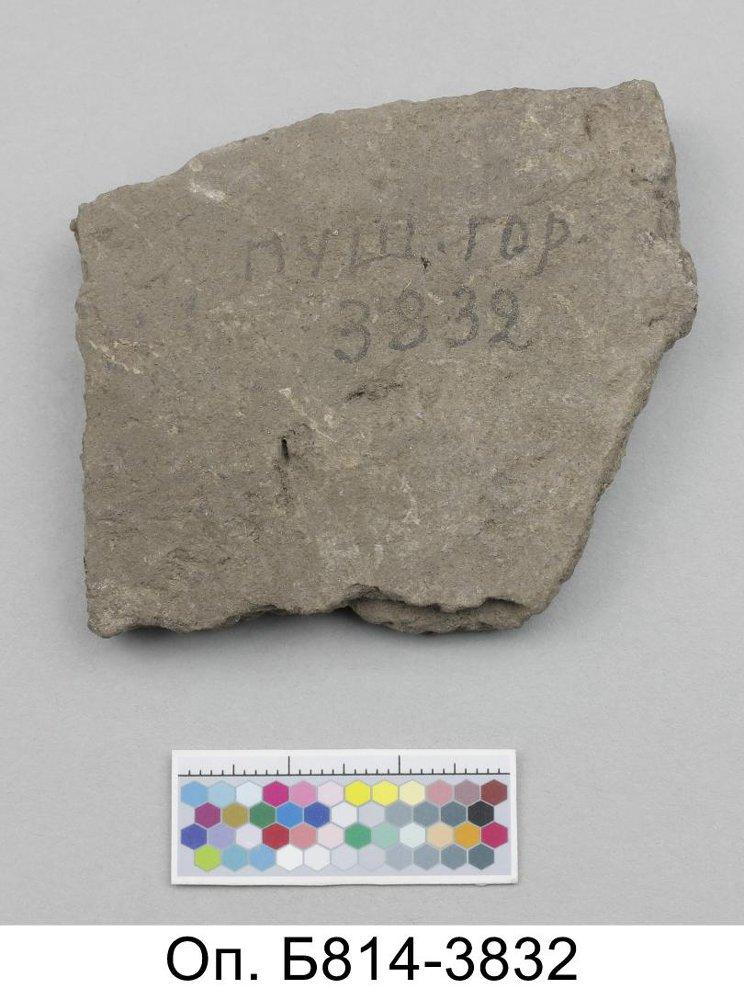 пущ. гор
3832
Оп. Б814-3832